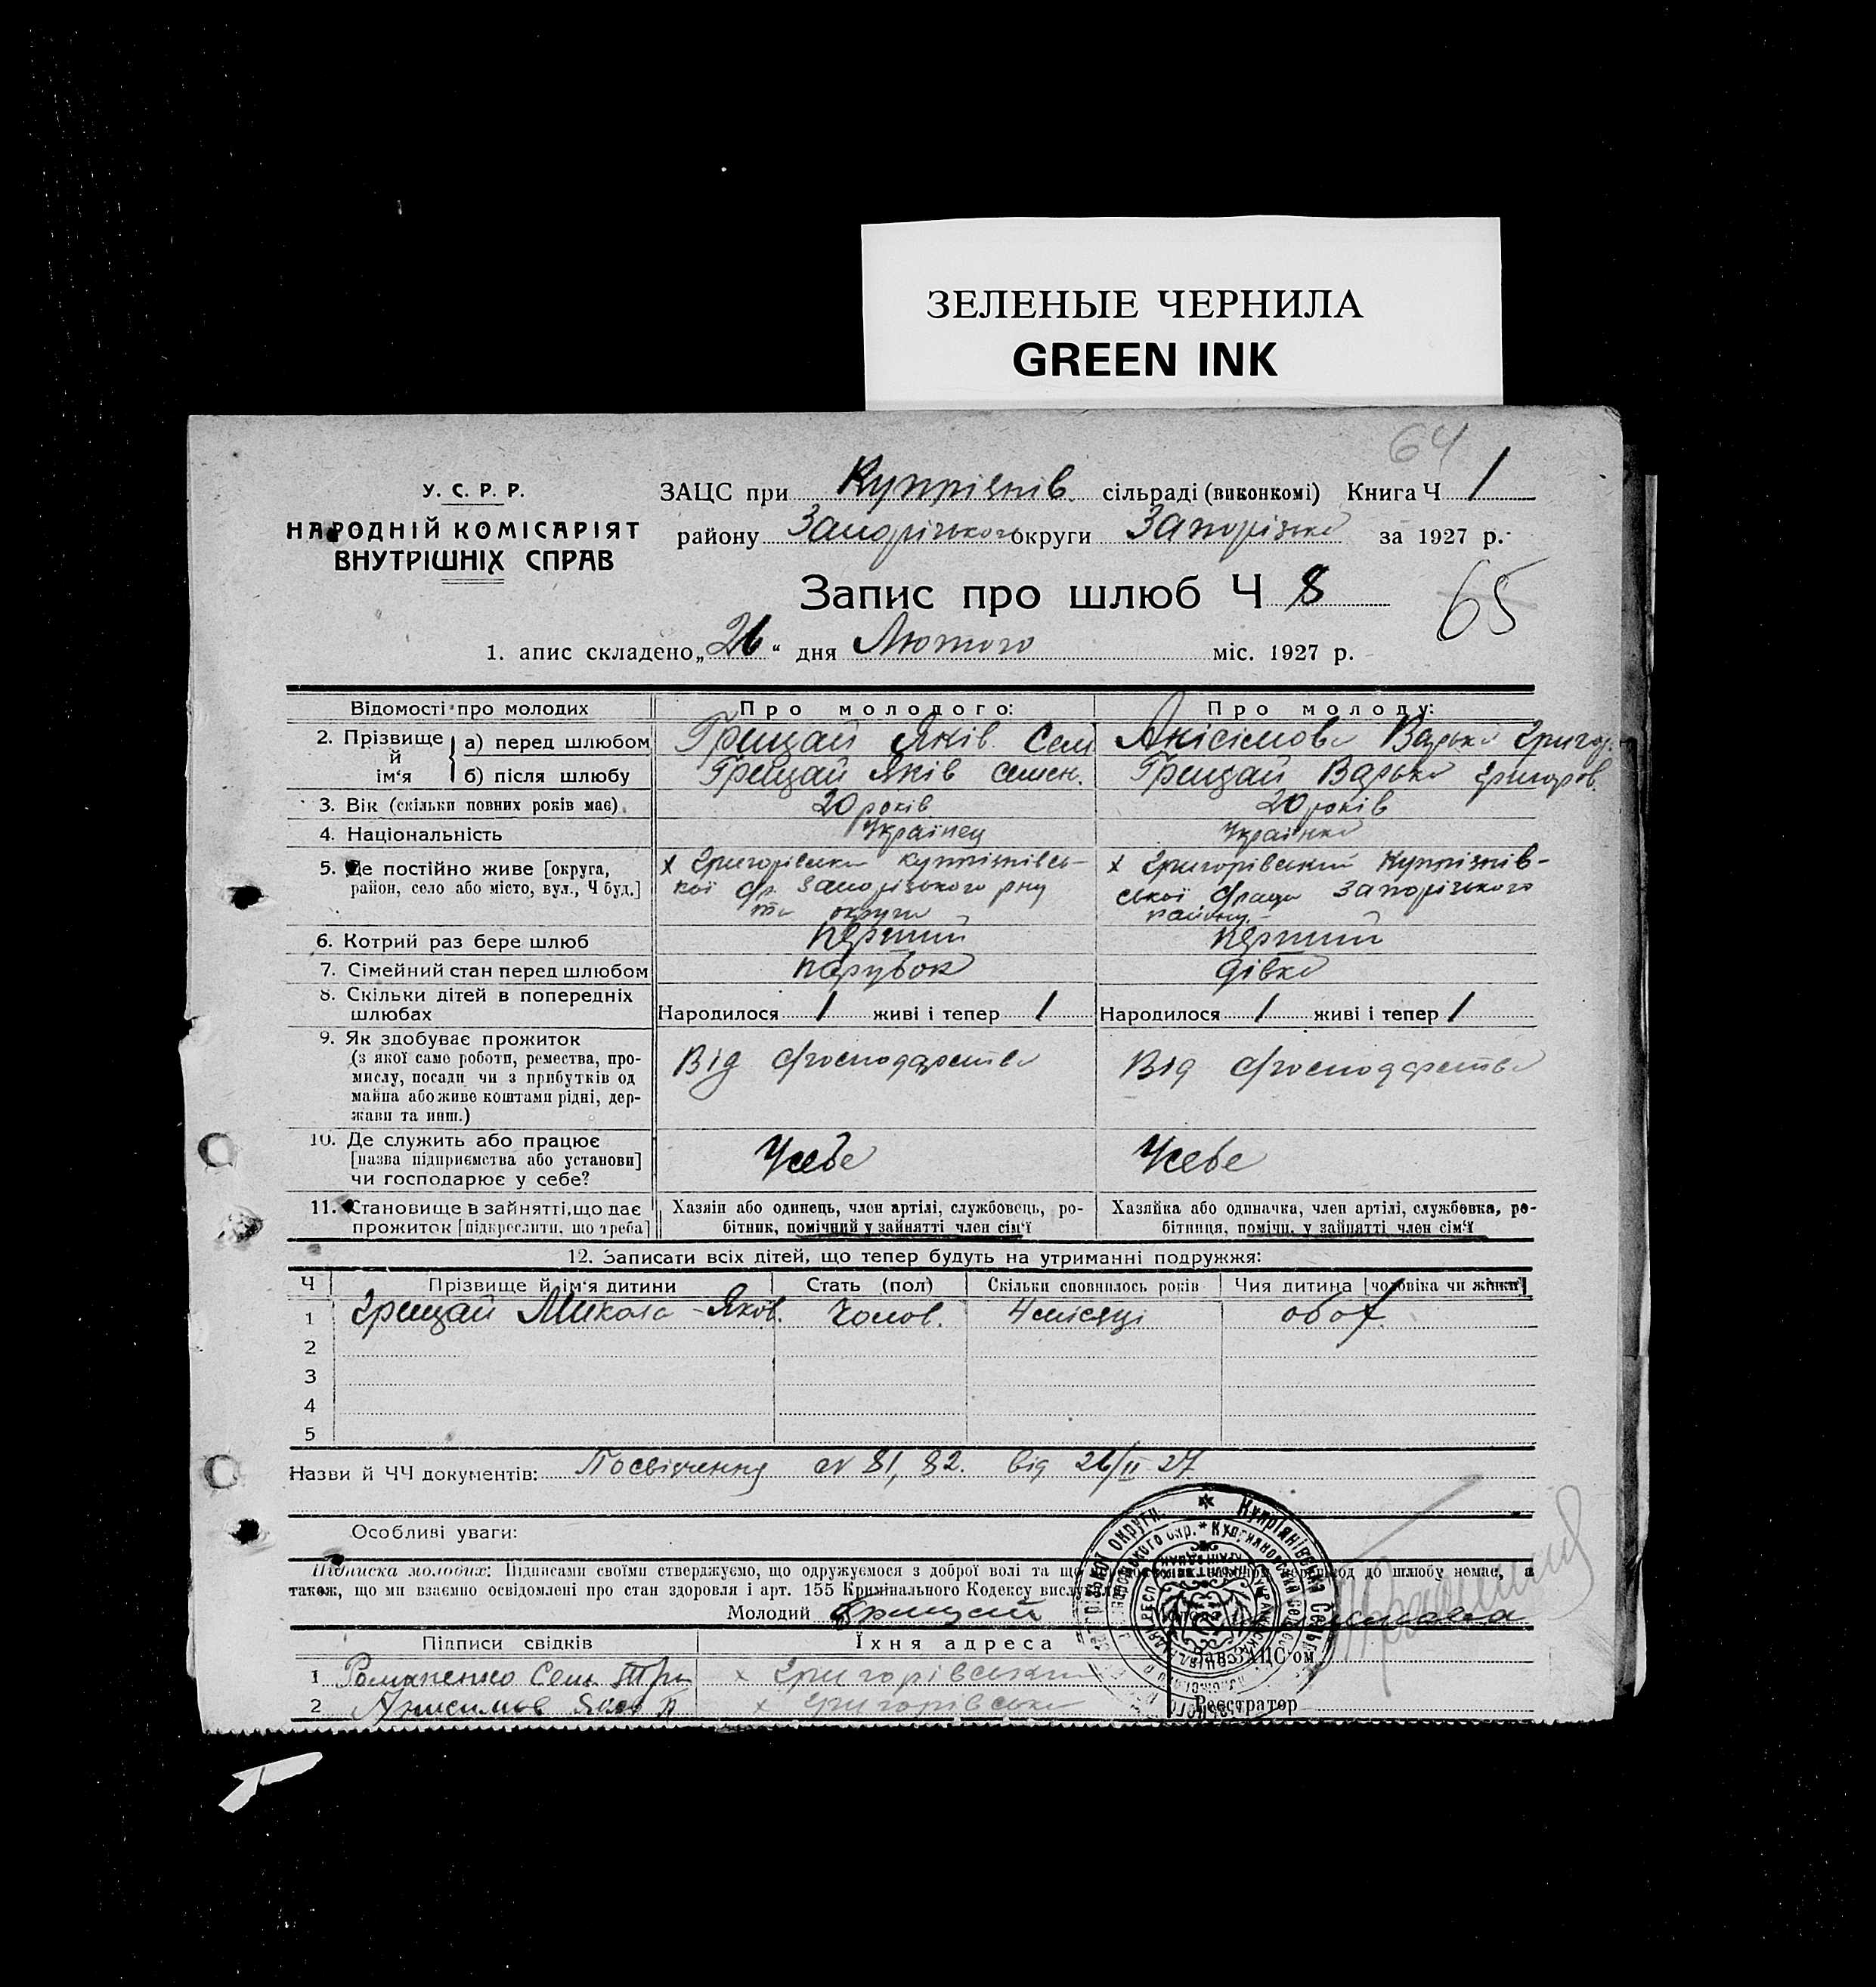 ЗЕЛЕНЫЕ ЧЕРНИЛА
GREEN INK
64
У. С. Р. Р.
НАРОДНІЙ КОМІСАРІЯТ
ВНУТРІШНІХ СПРАВ
ЗАЦС при Купріянів. сільраді (виконкомі) Книга Ч 1
району Запорізького округи Запорізької за 1927 р.
Запис про шлюб Ч 8
65
1. апис складено „26“ дня Лютого міс. 1927 р.
Відомості про молодих Про молодого: Про молоду:
2. Прізвище й ім‘я а) перед шлюбом Грицай Яків Сем Анісімова Варька Григор.
б) після шлюбу Грицай Яків семен. Грицай Варька григоров.
3. Вік (скільки повних років має) 20 років 20 років
4. Національність Українец Українка
5. Де постійно живе [округа, район, село або місто, вул., Ч буд.]
х Григорівськи купріянівсь-
кої с/р. Запорізького р-ну
та округи
х Григорівський Купріянів-
ської с/ради Запорізького
району.
6. Котрий раз бере шлюб перший перший
7. Сімейний стан перед шлюбом парубок дівка
8. Скільки дітей в попередніх шлюбах Народилося / живі і тепер / Народилося / живі і тепер /
9. Як здобуває прожиток Від с/господарства Від с/господарства
(з якої саме роботи, ремества, про-
мислу, посади чи з прибутків од
майна або живе коштами рідні, дер-
жави та инш.)
10. Де служить або працює Усебе Усебе
[назва підприємства або установи]
чи господарює у себе?
11. Становище в зайнятті, що дає прожиток [підкреслити, що треба]
Хазяїн або одинець, член артілі, службовець, ро-
бітник, помічний у зайнятті член сім‘ї
Хазяйка або одиначка, член артілі, службовка, ро-
бітниця, помічн. у зайнятті член сім‘ї
12. Записати всіх дітей, що тепер будуть на утриманні подружжя:
Ч Прізвище й ім‘я дитини Стать (пол) Скільки сповнилось років Чия дитина [чоловіка чи жінки]
1 Грицай Микола Яков. Чолов. 4 місяці обох
2
3
4
5
Назви й ЧЧ документів: Посвідчення № 81, 82. від 26/II 27
Особливі уваги:
Підписка молодих: Підписами своїми стверджуємо, що одружуємося з доброї волі та що перешкод до шлюбу немає, а
також, що ми взаємно освідомлені про стан здоровля і арт. 155 Кримінального Кодексу
Молодий Грицай
Підписи свідків Їхня адреса
Зав ЗАЦС‘ом
1 Романенко Сем. х Григорівський
2 Анисимов х григорівськи
Реєстратор